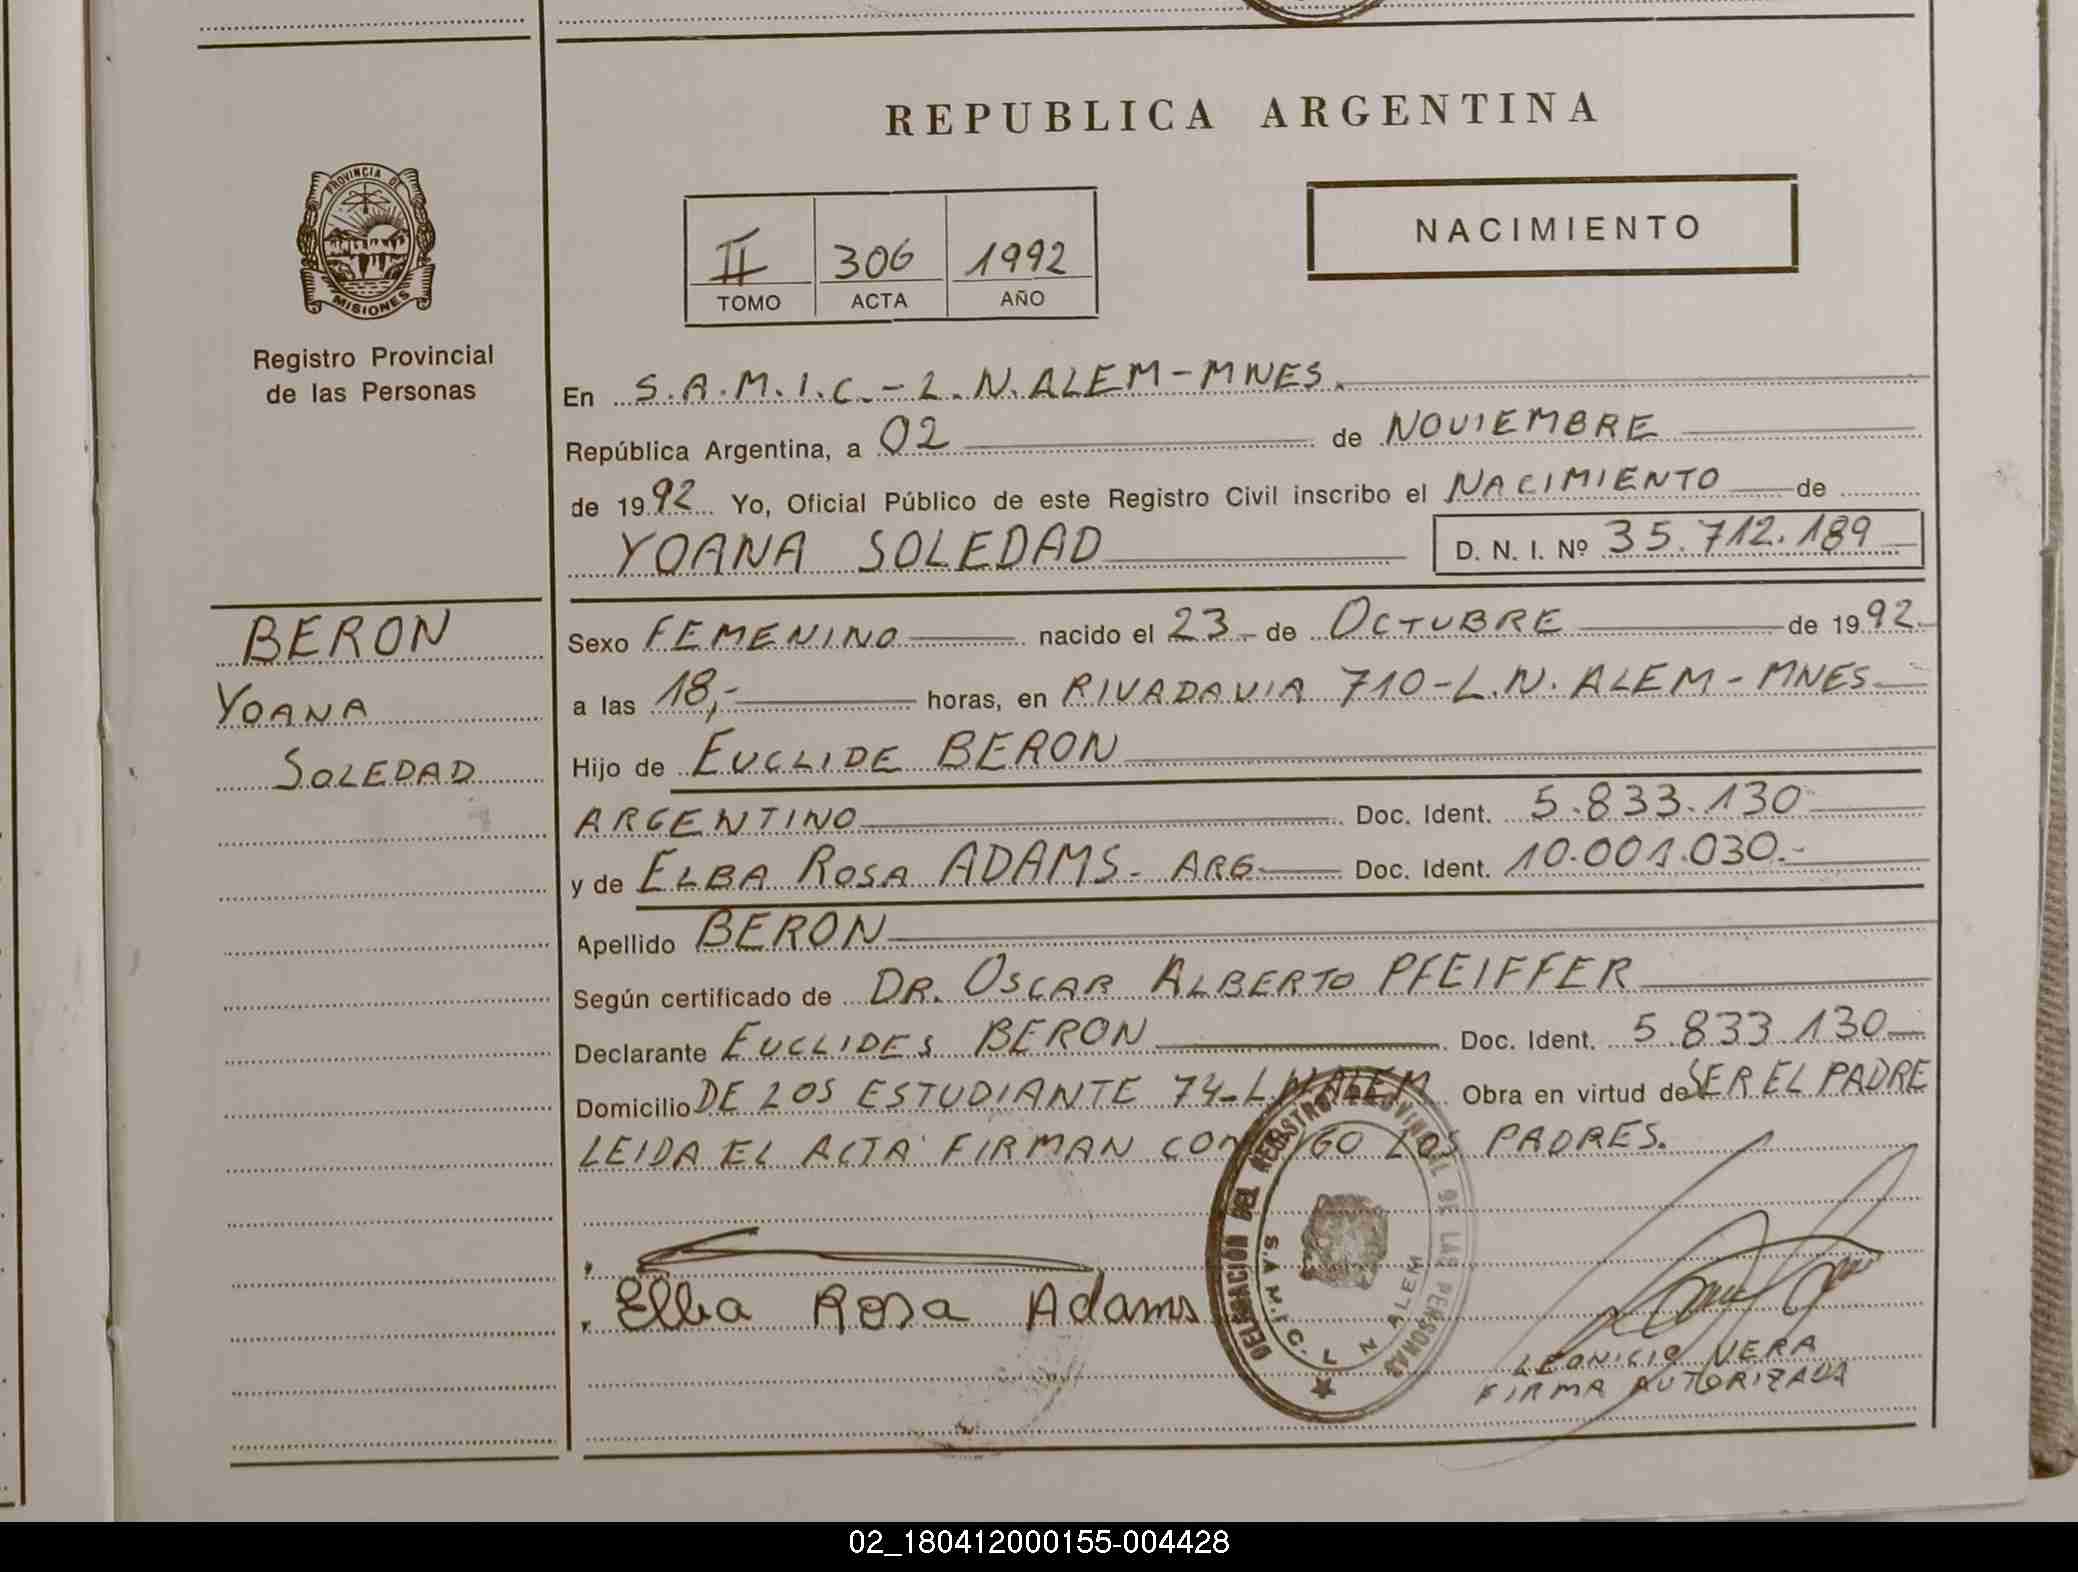 REPUBLICA ARGENTINA
PROVINCIA DE
MISIONES
Registro Provincial
de las Personas
II 306 1992
TOMO ACTA AÑO
NACIMIENTO
En S.A.M.I.C.-L.N.ALEM-MNES.
República Argentina, a 02 de NOVIEMBRE
de 1992 Yo, Oficial Público de este Registro Civil inscribo el NACIMIENTO de
YOANA SOLEDAD D. N. I. Nº 35.712.189
BERON
YOANA
SOLEDAD
Sexo FEMENINO nacido el 23 de OCTUBRE de 1992
a las 18,- horas, en RIVADAVIA 710-L.N. ALEM-MNES
Hijo de EUCLIDE BERON
ARGENTINO Doc. Ident. 5.833.130
y de ELBA ROSA ADAMS- ARG Doc. Ident. 10.001.030.-
Apellido BERON
Según certificado de DR. OSCAR ALBERTO PFEIFFER
Declarante EUCLIDES BERON Doc. Ident. 5.833.130
Domicilio DE LOS ESTUDIANTE 74-L.N.ALEM Obra en virtud de SER EL PADRE
LEIDA EL ACTA FIRMAN CONMIGO LOS PADRES.
Elba Rosa Adams
DELEGACIÓN DEL REGISTRO PROVINCIAL DE LAS PERSONAS
S.A.M.I.C. L N ALEM
LEONICIO VERA
FIRMA AUTORIZADA
02_180412000155-004428